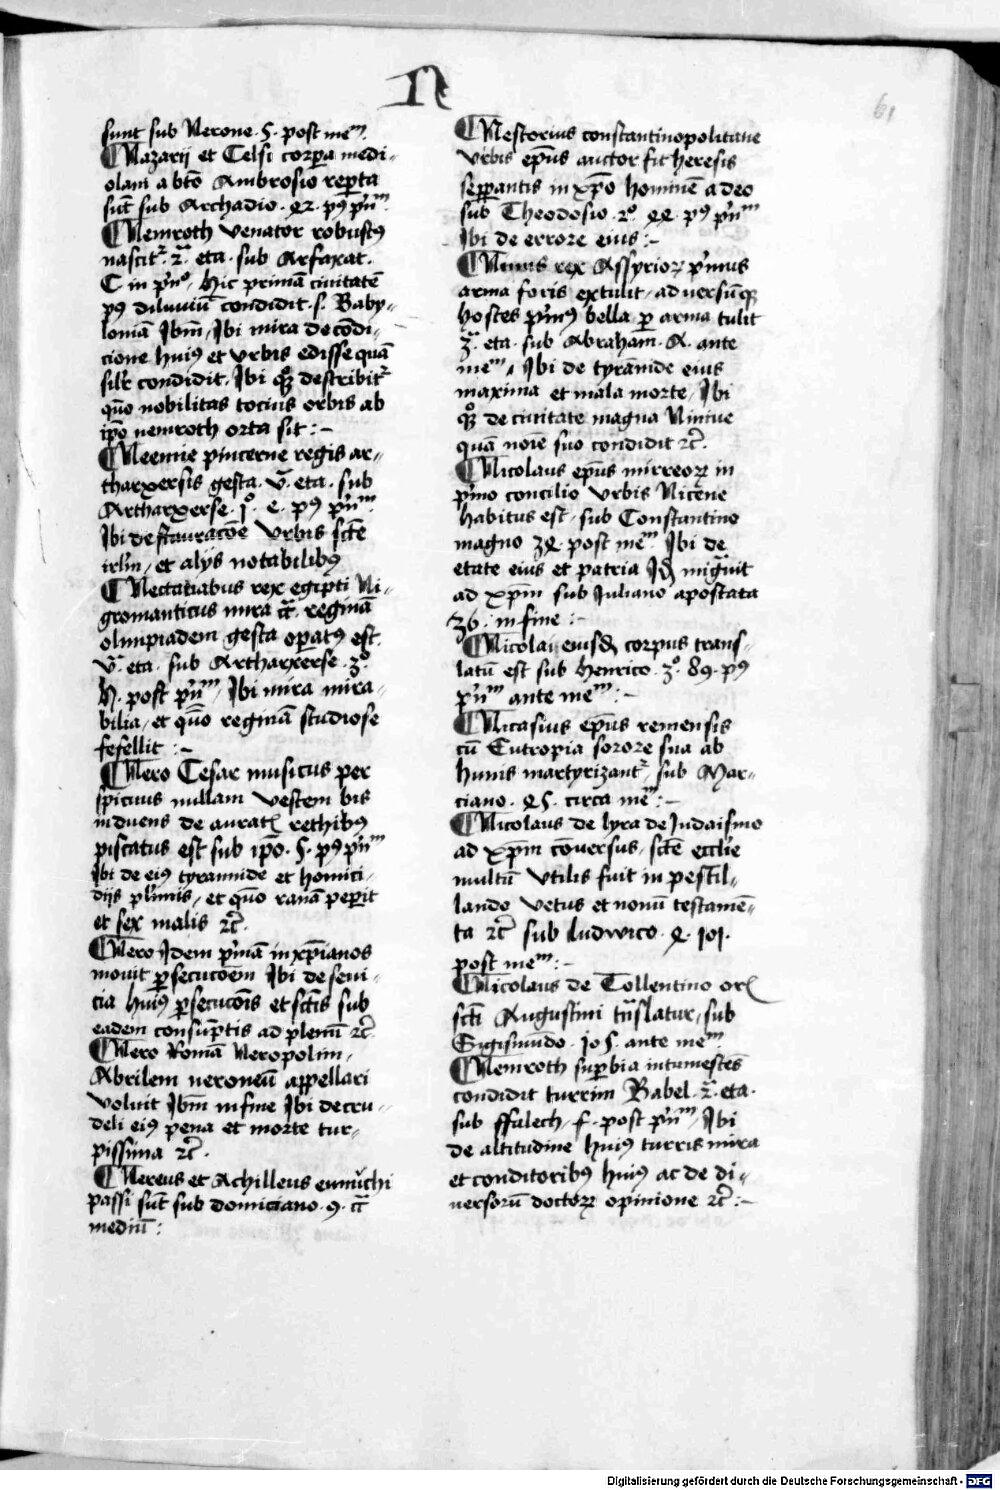 N
61
sunt sub Nerone . 5 . post meᵐ.
¶ Nazarij et Celsi corꝑa medi-
olani a bt̄o Ambrosio reꝑta
sūt sub Archadio . pꝰ pn̄ᵐ
¶ Nemroth venator robustꝰ
nascit᷑ . 2ᵃ. eta . sub Arfaxat .
C . in pⁿº, hic primam ciuitatē
pꝰ diluuiū condidit . s. Baby-
loniā Ibm̄, Ibi mira de cōdi-
cione huiꝰ et vrbis edisse quā
silr̄ condidit, Ibi qͦꝫ describit᷑
quō nobilitas tocius orbis ab
ip̄o nemroth orta sit :-
¶ Neemie pincerne regis ar-
tharxersis gesta . v̄ . eta . sub
Artharxerse . jº . e . pꝰ pn̄ᵐ.
Ibi de stauracōe vrbis sct̄e
irlm̄, et alijs notabilibꝰ
¶ Nectanabus rex egipti Ni-
gromanticus mira cͣ . reginā
olimpiadem gesta oꝑatꝰ est
v̄ . eta . sub Artharxerse . 3º.
h . post pn̄ᵐ, Ibi mira mira-
bilia, et quō reginā studiose
fefellit :-
¶ Nero Cesar musicus per
spicuus nullam vestem bis
induens de auratꝭ rethibꝰ
piscatus est sub ip̄o . 5 . pꝰ pn̄ᵐ
Ibi de eiꝰ tyrannide et homici-
dijs plīmis, et quō ranā peperit
et sex malis ꝛc̄.
¶ Nero Idem pⁱmā in xp̄ianos
mouit ꝑsecucōem Ibi de seui-
cia huiꝰ ꝑsecucōis et sctīs sub
eadem consūptis ad plenū ꝛc̄
¶ Nero Romā Neropolim,
Abrilem neroneū appellari
voluit Ibm̄ in fine Ibi de cru-
deli eiꝰ pena et morte tur-
pissima ꝛc̄.
¶ Nereus et Achilleus eunuchi
passi sūt sub domiciano . 9 . cͣ
mediū :
¶ Nestorius constantinopolitane
vrbis ep̄us auctor fit heresis
seꝑantis in xp̄o hominē a deo
sub Theodosio . 2º . pꝰ pn̄ᵐ
Ibi de errore eius :-
¶ Ninus rex Assyrioꝝ pⁱmus
arma foris extulit, ad versūqꝫ
hostes pⁱmꝰ bella ꝑ arma tulit
3ᵃ. eta . sub Abraham . A . ante
meᵐ, Ibi de tyrānide eius
maxima et mala morte, Ibi
qͦꝫ de ciuitate magna Niniue
quā noīe suo condidit ꝛc̄.
¶ Nicolaus ep̄us mirreoꝝ in
pⁱmo concilio vrbis Nicene
habitus est, sub Constantino
magno post meᵐ. Ibi de
etate eius et patria Idꝫ migͣuit
ad xp̄m sub Iuliano apostata
36 . in fine :-
¶ Nicolai eiusdꝫ corpus trans-
latū est sub Henrico . 3º. 89 . pꝰ
pn̄ᵐ ante meᵐ :-
¶ Nicasius ep̄us remensis
cū Eutropia sorore sua ab
hunis martyrizant᷑, sub Mar-
ciano . circa meᵐ :-
¶ Nicolaus de lyra de Iudaismo
ad xp̄m cōuersus, sct̄e eccl̄ie
multū vtilis fuit in postil-
lando vetus et nouū testamē-
ta ꝛc̄ sub ludwico . 101.
post meᵐ :-
¶ Nicolaus de Tollentino orꝭ
sct̄i Augustini tn̄slatur, sub
Sigismūdo . 105 . ante meᵐ
¶ Nemroth suꝑbia intumescēs
condidit turrim Babel . 2ᵃ. eta .
sub ffalech . f . post pn̄ᵐ, Ibi
de altitudine huiꝰ turris mira
et conditoribꝰ huiꝰ ac de di-
versorū doctoꝝ opinione ꝛc̄ :-
Digitalisierung gefördert durch die Deutsche Forschungsgemeinschaft - DFG